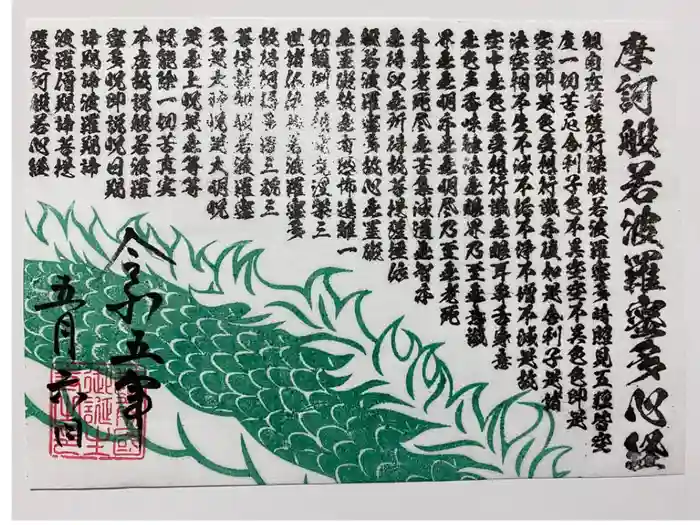 摩訶般若波羅蜜多心経
観自在菩薩行深般若波羅蜜多時照見五蘊皆空
度一切苦厄舎利子色不異空空不異色色即是
空空即是色受想行識亦復如是舎利子是諸
法空相不生不滅不垢不浄不増不減是故
空中無色無受想行識無眼耳鼻舌身意
無色声香味触法無眼界乃至無意識
界無無明亦無無明尽乃至無老死
亦無老死尽無苦集滅道無智亦
無得以無所得故菩提薩埵依
般若波羅蜜多故心無罣礙
無罣礙故無有恐怖遠離一
切顛倒夢想究竟涅槃三
世諸仏依般若波羅蜜多
故得阿耨多羅三藐三
菩提故知般若波羅蜜
多是大神呪是大明呪
是無上呪是無等等
呪能除一切苦真実
不虚故説般若波羅
蜜多呪即説呪曰羯
諦羯諦波羅羯諦
波羅僧羯諦菩提
薩婆訶般若心経
令和五年
五月六日